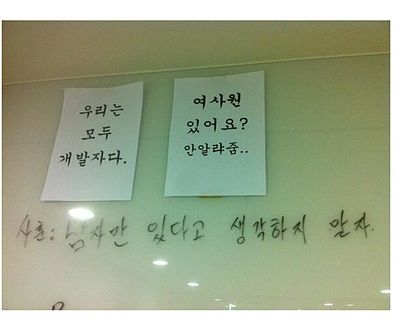 우리는
모두
개발자다.
여사원
있어요?
안알랴줌..
사훈: 남자만 있다고 생각하지 말자.